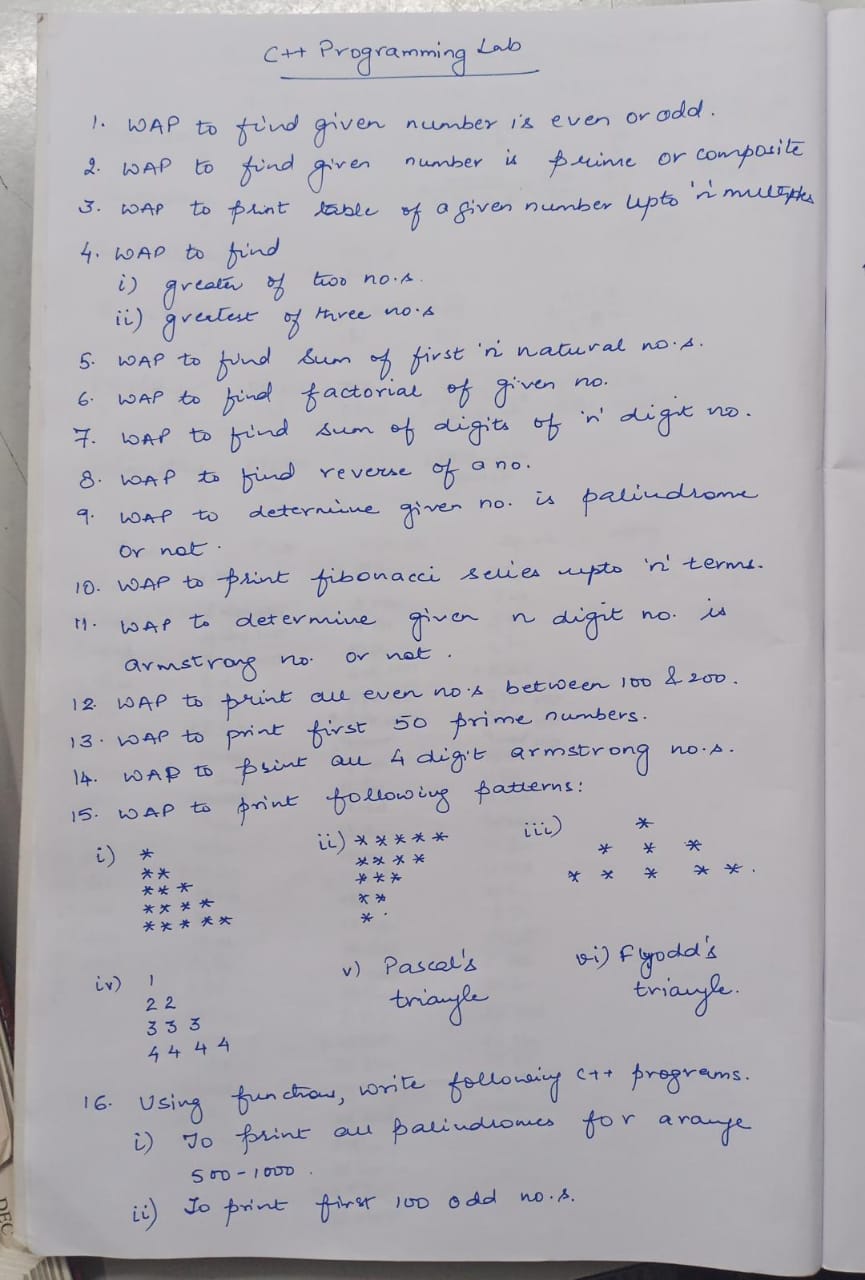 C++ Programming Lab
1. WAP to find given number is even or odd.
2. WAP to find given number is prime or composite
3. WAP to print table of a given number upto 'n' multiples
4. WAP to find
i) greater of two no.s.
ii) greatest of three no.s
5. WAP to find sum of first 'n' natural no.s.
6. WAP to find factorial of given no.
7. WAP to find sum of digits of 'n' digit no.
8. WAP to find reverse of a no.
9. WAP to determine given no. is palindrome
or not.
10. WAP to print fibonacci series upto 'n' terms.
11. WAP to determine given n digit no. is
armstrong no. or not.
12. WAP to print all even no.s between 100 & 200.
13. WAP to print first 50 prime numbers.
14. WAP to print all 4 digit armstrong no.s.
15. WAP to print following patterns:
i) *
* *
* * *
* * * *
* * * * *
ii) * * * * *
* * * *
* * *
* *
* .
iii) *
* * *
* * * * * .
iv) 1
2 2
3 3 3
4 4 4 4
v) Pascal's
triangle
vi) Flyodd's
triangle.
16. Using functions, write following C++ programs.
i) To print all palindromes for a range
500-1000.
ii) To print first 100 odd no.s.
DEC